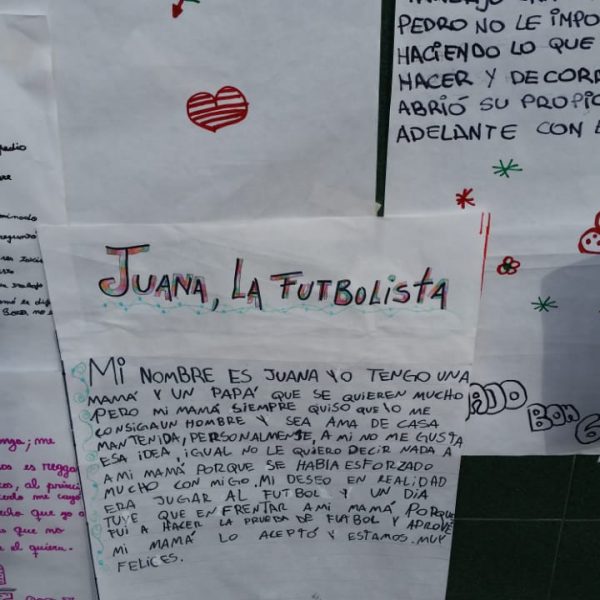 PEDRO NO LE IMPO
HACIENDO LO QUE
HACER Y DECORA
ABRIÓ SU PROPIO
ADELANTE CON
JUANA, LA FUTBOLISTA
MI NOMBRE ES JUANA YO TENGO UNA
MAMÁ Y UN PAPÁ QUE SE QUIEREN MUCHO
PERO MI MAMÁ SIEMPRE QUISO QUE YO ME
CONSIGA UN HOMBRE Y SEA AMA DE CASA
MANTENIDA, PERSONALMENTE, A MI NO ME GUSTA
ESA IDEA, IGUAL NO LE QUIERO DECIR NADA A
A MI MAMÁ PORQUE SE HABIA ESFORZADO
MUCHO CON MIGO. MI DESEO EN REALIDAD
ERA JUGAR AL FUTBOL Y UN DIA
TUVE QUE ENFRENTAR A MI MAMÁ PORQUE
FUI A HACER LA PRUEBA DE FUTBOL Y APROVÉ
MI MAMÁ LO ACEPTÓ Y ESTAMOS MUY
FELICES.
ADO BON
me
os es regga
os, al princi
me cayó
que yo
que no
el quiera.